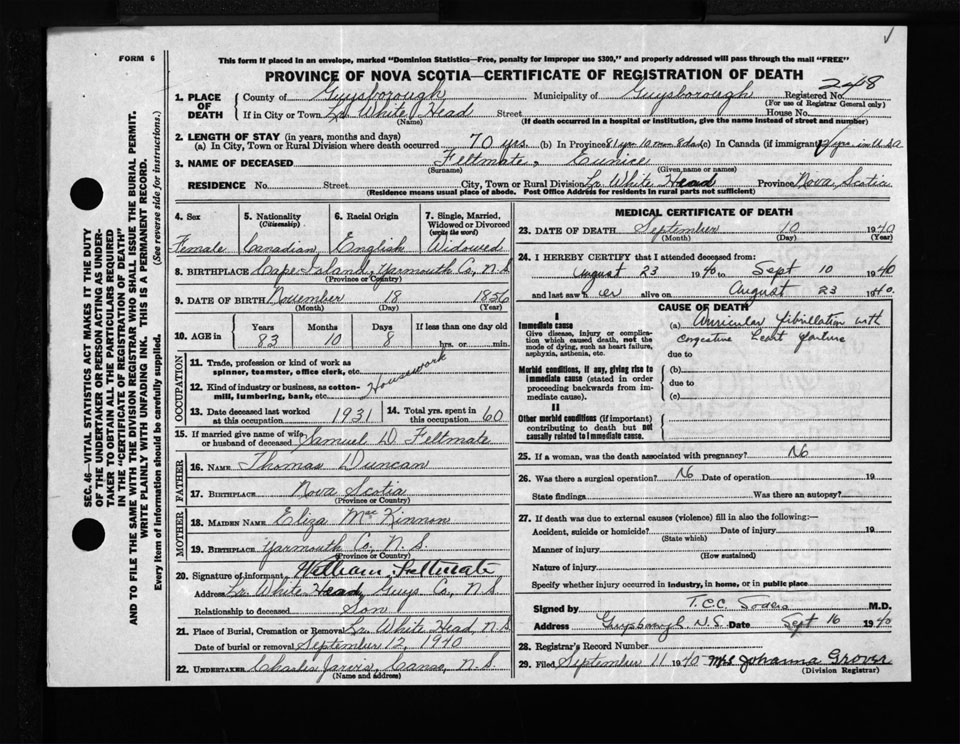 FORM 6
This form if placed in an envelope, marked "Dominion Statistics—Free, penalty for improper use $300," and properly addressed will pass through the mail "FREE"
PROVINCE OF NOVA SCOTIA—CERTIFICATE OF REGISTRATION OF DEATH
1. PLACE OF DEATH
County of Guysborough Municipality of Guysborough Registered No. 2248
(For use of Registrar General only)
If in City or Town Lr White Head Street House No.
(Name) (If death occurred in a hospital or institution, give the name instead of street and number)
2. LENGTH OF STAY (in years, months and days)
(a) In City, Town or Rural Division where death occurred 70 yrs. (b) In Province 81 yrs 10 mos 8 das (c) In Canada (if immigrant) 2 yrs in U.S.A
3. NAME OF DECEASED Feltmate, Eunice
(Surname) (Given name or names)
RESIDENCE No. Street City, Town or Rural Division Lr White Head Province Nova Scotia
(Residence means usual place of abode. Post Office Address for residents in rural parts not sufficient)
4. Sex
Female
5. Nationality (Citizenship)
Canadian
6. Racial Origin
English
7. Single, Married, Widowed or Divorced (write the word)
Widowed
8. BIRTHPLACE Cape Island, Yarmouth Co, N.S
(Province or Country)
9. DATE OF BIRTH November 18 1856
(Month) (Day) (Year)
10. AGE in
Years Months Days If less than one day old
83 10 8 hrs. or min.
OCCUPATION
11. Trade, profession or kind of work as spinner, teamster, office clerk, etc.
12. Kind of industry or business, as cotton-mill, lumbering, bank, etc.
Housework
13. Date deceased last worked at this occupation 1931
14. Total yrs. spent in this occupation 60
15. If married give name of wife or husband of deceased Samuel D Feltmate
FATHER
16. NAME Thomas Duncan
17. BIRTHPLACE Nova Scotia
(Province or Country)
MOTHER
18. MAIDEN NAME Eliza MacKinnon
19. BIRTHPLACE Yarmouth Co, N.S.
(Province or Country)
20. Signature of informant William Feltmate
Address Lr White Head, Guys Co, N.S.
Relationship to deceased Son
21. Place of Burial, Cremation or Removal Lr White Head, N.S
Date of burial or removal September 12, 1940
22. UNDERTAKER Charlie Jarvis, Canso, N.S.
(Name and address)
MEDICAL CERTIFICATE OF DEATH
23. DATE OF DEATH September 10 1940
(Month) (Day) (Year)
24. I HEREBY CERTIFY that I attended deceased from:
August 23 1940 to Sept 10 1940
and last saw her alive on August 23 1940.
CAUSE OF DEATH
I
Immediate cause
Give disease, injury or complication which caused death, not the mode of dying, such as heart failure, asphyxia, asthenia, etc.
(a) Auricular fibrillation with
congestive heart failure
due to
Morbid conditions, if any, giving rise to immediate cause (stated in order proceeding backwards from immediate cause).
(b)
due to
(c)
II
Other morbid conditions (if important) contributing to death but not causally related to immediate cause.
25. If a woman, was the death associated with pregnancy? No
26. Was there a surgical operation? No Date of operation 19
State findings Was there an autopsy?
27. If death was due to external causes (violence) fill in also the following:—
Accident, suicide or homicide? Date of injury 19
(State which)
Manner of injury
(How sustained)
Nature of injury
Specify whether injury occurred in industry, in home, or in public place
Signed by T.C.C. M.D.
Address Guysborough, N.S. Date Sept 16 1940
28. Registrar's Record Number
29. Filed September 11 1940 Mrs Johanna Grover
(Division Registrar)
SEC. 46—VITAL STATISTICS ACT MAKES IT THE DUTY
OF THE UNDERTAKER OR PERSON ACTING AS UNDERTAKER TO OBTAIN ALL THE PARTICULARS REQUIRED
IN THE "CERTIFICATE OF REGISTRATION OF DEATH"
AND TO FILE THE SAME WITH THE DIVISION REGISTRAR WHO SHALL ISSUE THE BURIAL PERMIT.
WRITE PLAINLY WITH UNFADING INK. THIS IS A PERMANENT RECORD.
Every item of information should be carefully supplied. (See reverse side for instructions.)